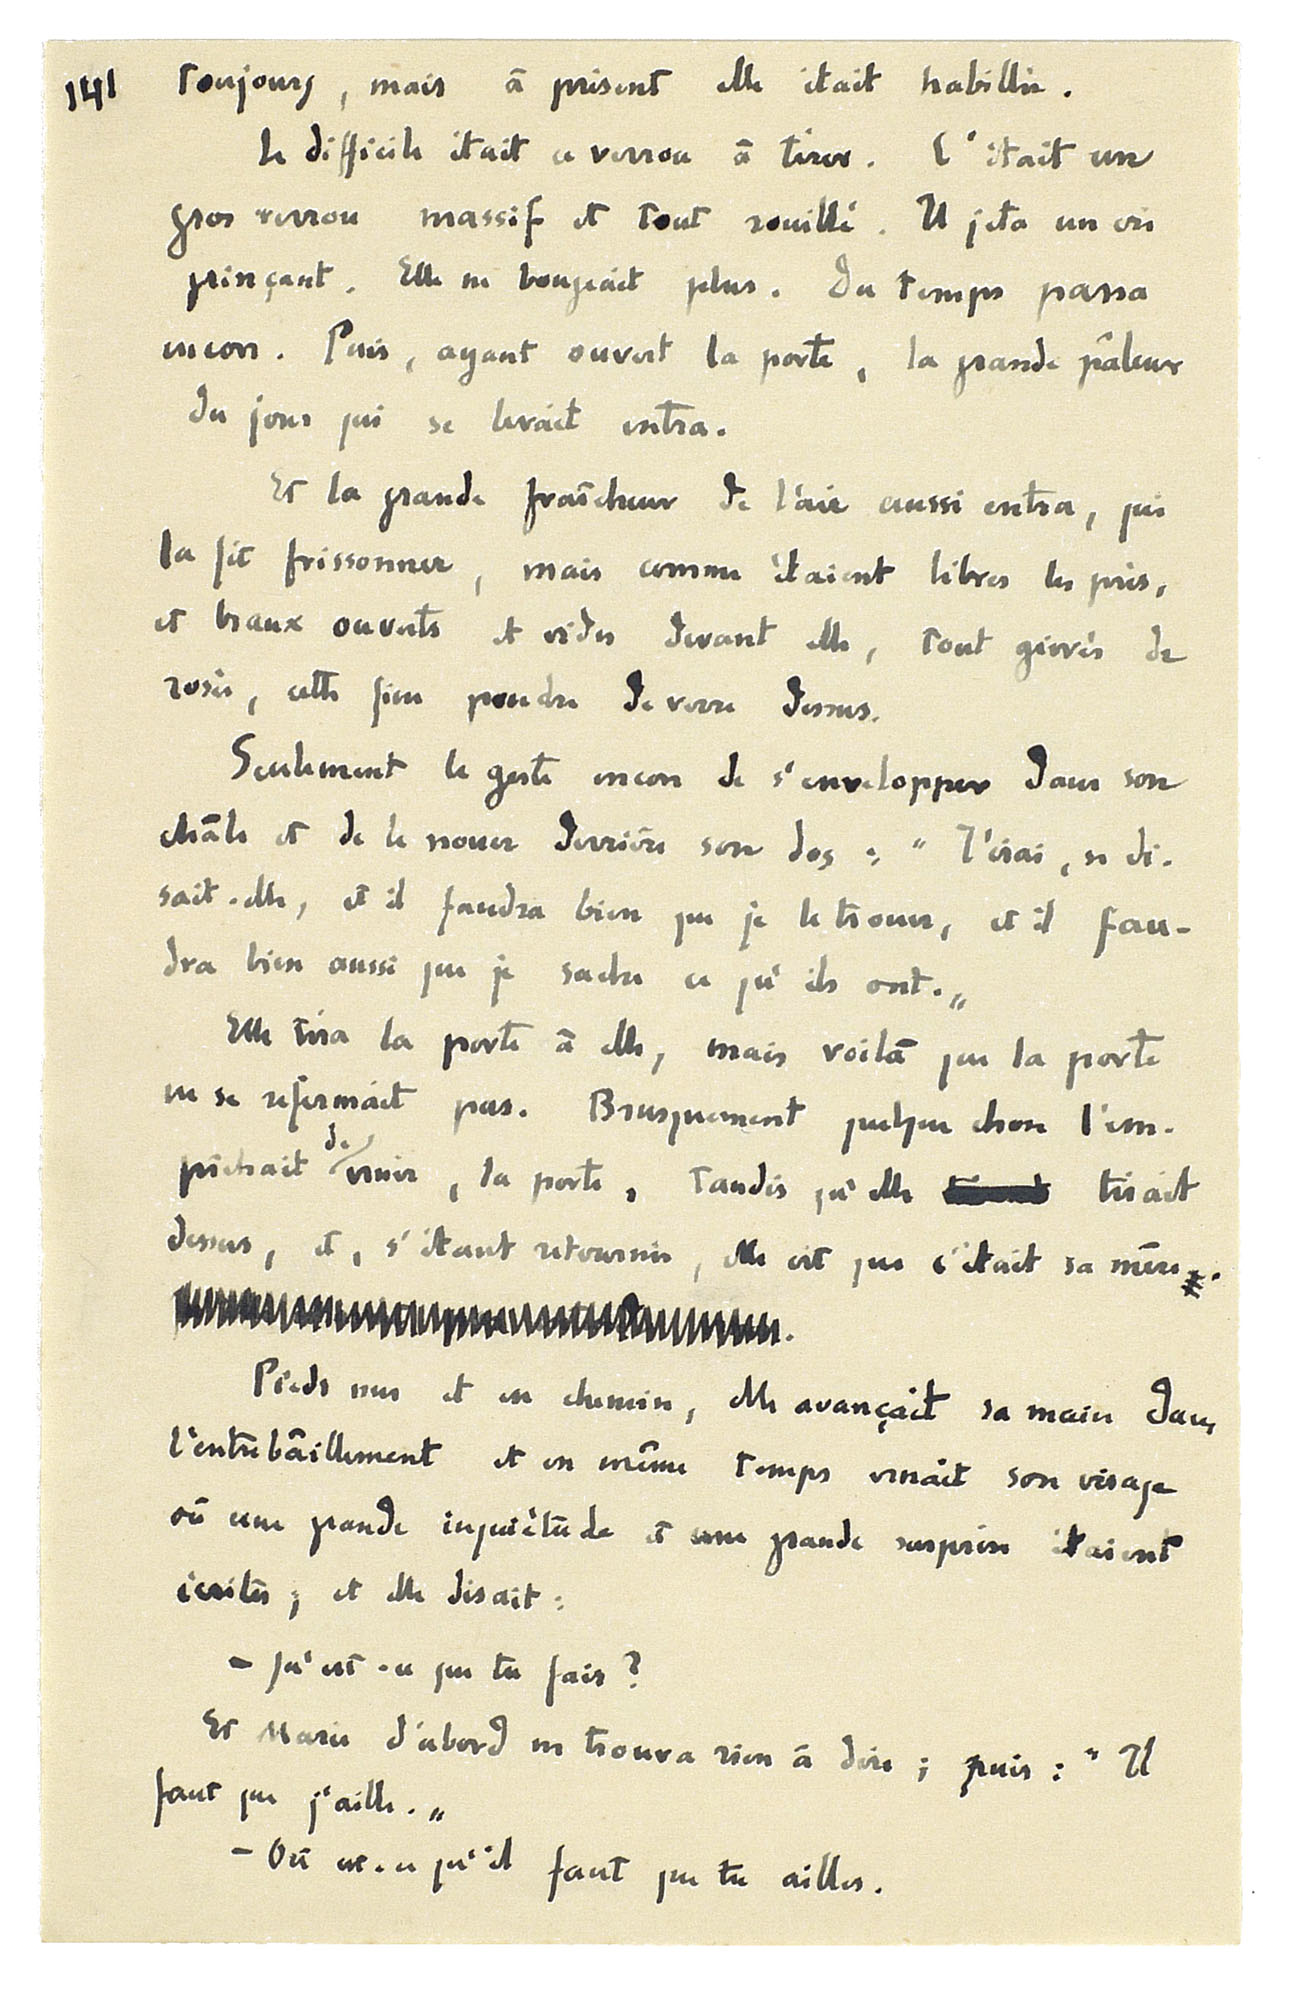 141 toujours, mais à présent elle était habillée.
Le difficile était ce verrou à tirer. C'était un
gros verrou massif et tout rouillé. Il jeta un cri
grinçant. Elle ne bougeait plus. Du temps passa
encore. Puis, ayant ouvert la porte, la grande pâleur
du jour qui se levait entra.
Et la grande fraîcheur de l'air aussi entra, qui
la fit frissonner, mais comme étaient libres les prés,
et beaux ouverts et vides devant elle, tout givrés de
rosée, cette fine poudre de verre dessus.
Seulement le geste encore de s'envelopper dans son
châle et de le nouer derrière son dos : " J'irai, se di-
sait-elle, et il faudra bien que je le trouve, et il fau-
dra bien aussi que je sache ce qu'ils ont. "
Elle tira la porte à elle, mais voilà que la porte
ne se refermait pas. Brusquement quelque chose l'em-
pêchait de venir, la porte, tandis qu'elle tirait
dessus, et, s'étant retournée, elle vit que c'était sa mère.
Pieds nus et en chemise, elle avançait sa main dans
l'entrebâillement et en même temps venait son visage
où une grande inquiétude et une grande surprise étaient
écrites ; et elle disait :
– Qu'est-ce que tu fais ?
Et Marie d'abord ne trouva rien à dire ; puis : " Il
faut que j'aille. "
– Où est-ce qu'il faut que tu ailles.